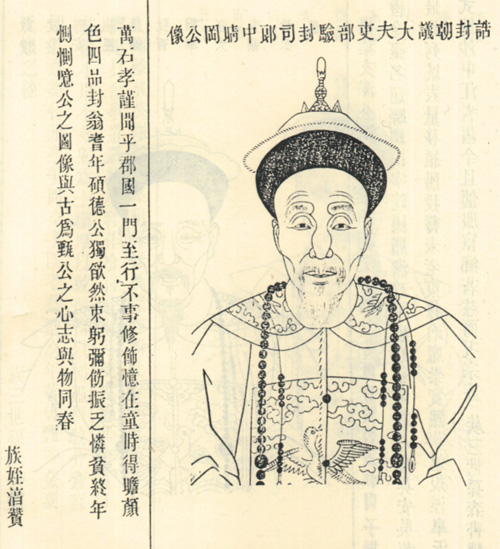 誥封朝議大夫吏部驗封司郎中晴岡公像
萬石孝謹聞乎郡國一門至行不事修飾憶在童時得瞻顏
色四品封翁耆年碩德公獨欿然束躬彌飭振乏憐貧終年
惻惻噫公之圖像與古爲甄公之心志與物同春
族姪湆贊